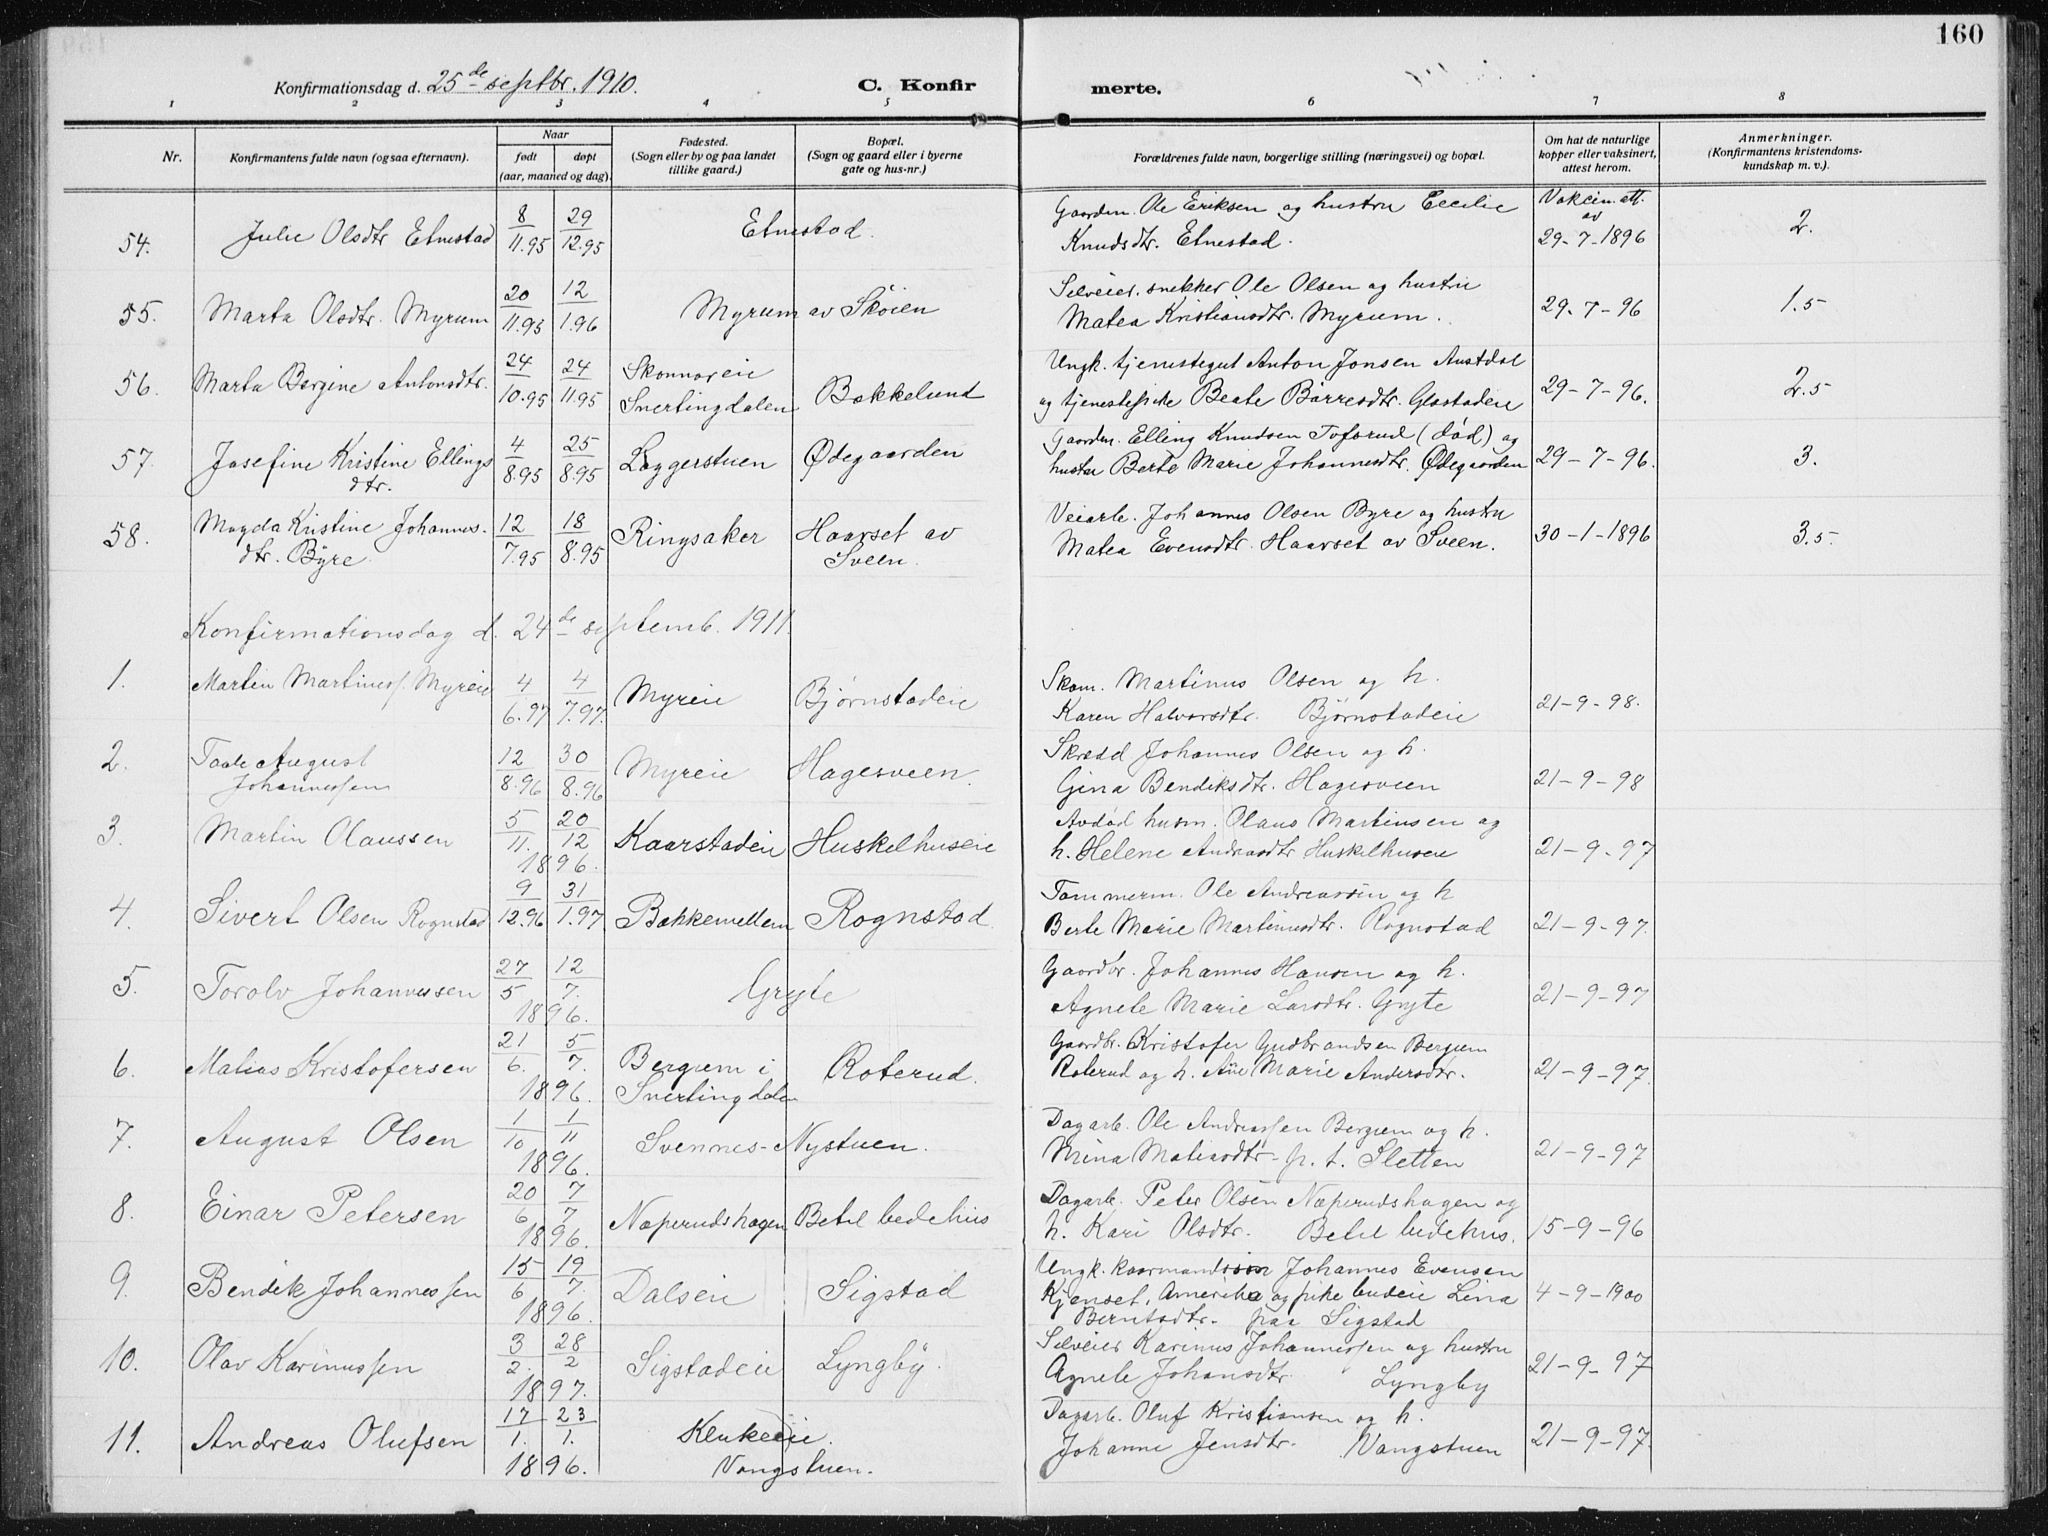 160
Konfirmationsdag d. 25de septbr. 1910. C. Konfir merte.
1 2 3 4 5 6 7 8
Nr. Konfirmantens fulde navn (ogsaa efternavn). Naar født døpt (aar, maaned og dag). Fødested. (Sogn eller by og paa landet tillike gaard.) Bopæl. (Sogn og gaard eller i byerne gate og hus-nr.) Forældrenes fulde navn, borgerlige stilling (næringsvei) og bopæl. Om hat de naturlige kopper eller vaksinert, attest herom. Anmerkninger. (Konfirmantens kristendomskundskap m. v.).
54. Julie Olsdtr Elnestad 8/11.95 29/12.95 Elnestad. Gaardm. Ole Eriksen og hustru Cecilie Vakcin. att. av
Knudsdtr. Elnestad. 29-7-1896 2.
55. Marta Olsdtr. Myrum 20/11.95 12/1.96 Myrum av Skøien Selveier. snekker Ole Olsen og hustru
Matea Kristiansdtr. Myrum. 29-7-96 1.5
56. Marta Bergine Antonsdtr. 24/10.95 24/11.95 Skonnoreie Snertingdalen Bakkelund Ungk. tjenestegut Anton Jonsen Austdal
og tjenestepike Beate Børresdtr. Glæstadeie 29-7-96. 2.5
57. Josefine Kristine Ellings dtr. 4/8.95 25/8.95 Læggerstuen Ødegaarden Gaardm. Elling Knudsen Tofsrud (død) og
hustru Berte Marie Johannesdtr. Ødegaarden 29-7-96. 3.
58. Magda Kristine Johannes- dtr. Byre 12/7.95 18/8.95 Ringsaker Haarset av Sveen. Veiarb. Johannes Olsen Byre og hustru
Matea Evensdtr. Haarset av Sveen. 30-1-1896 3.5
Konfirmationsdag d. 24de septemb. 1911.
1. Martin Martinuss. Myreie 4/6.97 4/7.97. Myreie Bjørnstadeie Skom. Martinus Olsen og h.
Karen Halvorsdtr. Bjørnstadeie 21-9-98.
2. August Johannessen 12/8.96 30/8.96 Myreie Hagesveen. Skredd Johannes Olsen og h.
Gina Bendiksdtr. Hagesveen 21-9-98
3. Martin Olaussen 5/11. 20/12 1896. Kaarstadeie Huskelhuseie Avdød husm. Olaus Martinsen og
h. Helene Andreasdtr Huskelhuseie 21-9-97
4. Sivert Olsen Rognstad 9/12.96 31/1.97 Bakkemellem Rognstad. Tømmerm. Ole Andreassen og h
Berte Marie Martinusdtr. Rognstad 21-9-97.
5. Torolv Johannessen 27/5 12/7. 1896. Gryte Gaardbr. Johannes Hansen og h.
Agnete Marie Larsdtr. Gryte 21-9-97
6. Matias Kristofersen 21/6. 5/7. 1896. Bergum i Snertingdalen Roterud. Gaardbr. Kristofer Gudbrandsen Bergum
Roterud og h. Ane Marie Andersdtr. 21-9-97.
7. August Olsen 1/10 1/11 1896. Svennes-Nystuen. Dagarb. Ole Andreassen Bergum og h.
Mina Matiasdtr- p.t. Sletten 21-9-97
8. Einar Petersen 20/6 7/7 1896. Næperudshagen Betel bedehus Dagarb. Peter Olsen Næperudshagen og
h. Kari Olsdtr. Betel bedehus. 15-9-96
9. Bendik Johannessen 15/6 19/7. 1896. Dalseie Sigstad Ungk. Johannes Evensen
Kjenset, Amerika og pike budeie Lina 4-9-1900
Berntsdtr. paa Sigstad
10. Olav Karinussen 3/2. 28/2 1897. Sigstadeie Lyngby. Selveier Karinus Johannessen og hustru
Agnete Johansdtr. Lyngby 21-9-97
11. Andreas Olufsen 17/1. 23/1. 1896. Klukeeie. Vangstuen. Dagarb. Oluf Kristiansen og h.
Johanne Jensdtr. Vangstuen 21-9-97.